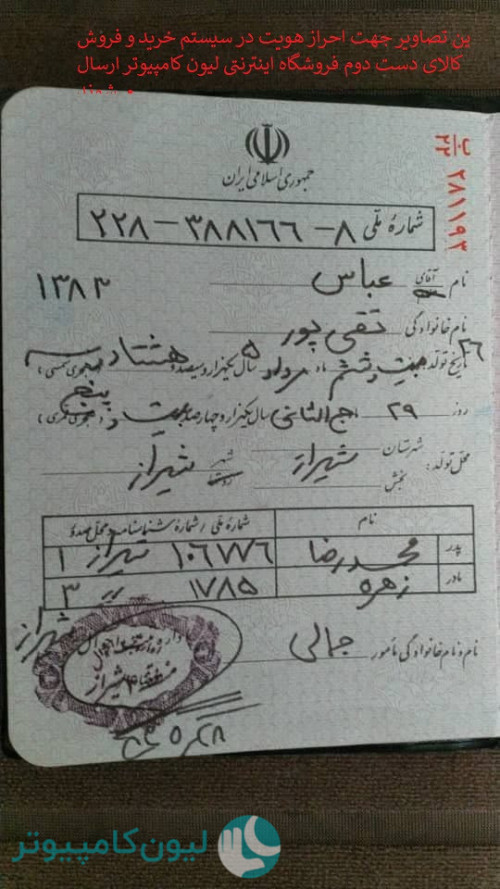 ین تصاویر جهت احراز هویت در سیستم خرید و فروش
کالای دست دوم فروشگاه اینترنتی لیون کامپیوتر ارسال
جمهوری اسلامی ایران
ب ۲۲ ۲۸۱۱۹۳
شمارهٔ ملّی ۸-۳۸۸۱۶۶-۲۲۸
نام آقای عباس ۱۳۸۳
نام خانوادگی تقی پور
۲۶
تاریخ تولد: بیست و ششم ماه مرداد سال یکهزار و سیصد و هشتاد و سه (هجری شمسی)
روز ۲۹ سال یکهزار و چهارصد و بیست و پنجم (هجری قمری)
محل تولد: شهرستان شیراز شهر شیراز
بخش روستا
نام شمارهٔ ملی / شمارهٔ شناسنامه و محل صدور
پدر محمدرضا ۱۰۶۷۷۶ شیراز ۱
مادر زهره ۱۷۸۵ ۳
نام و نام خانوادگی مأمور جمالی
شیراز
لیون کامپیوتر